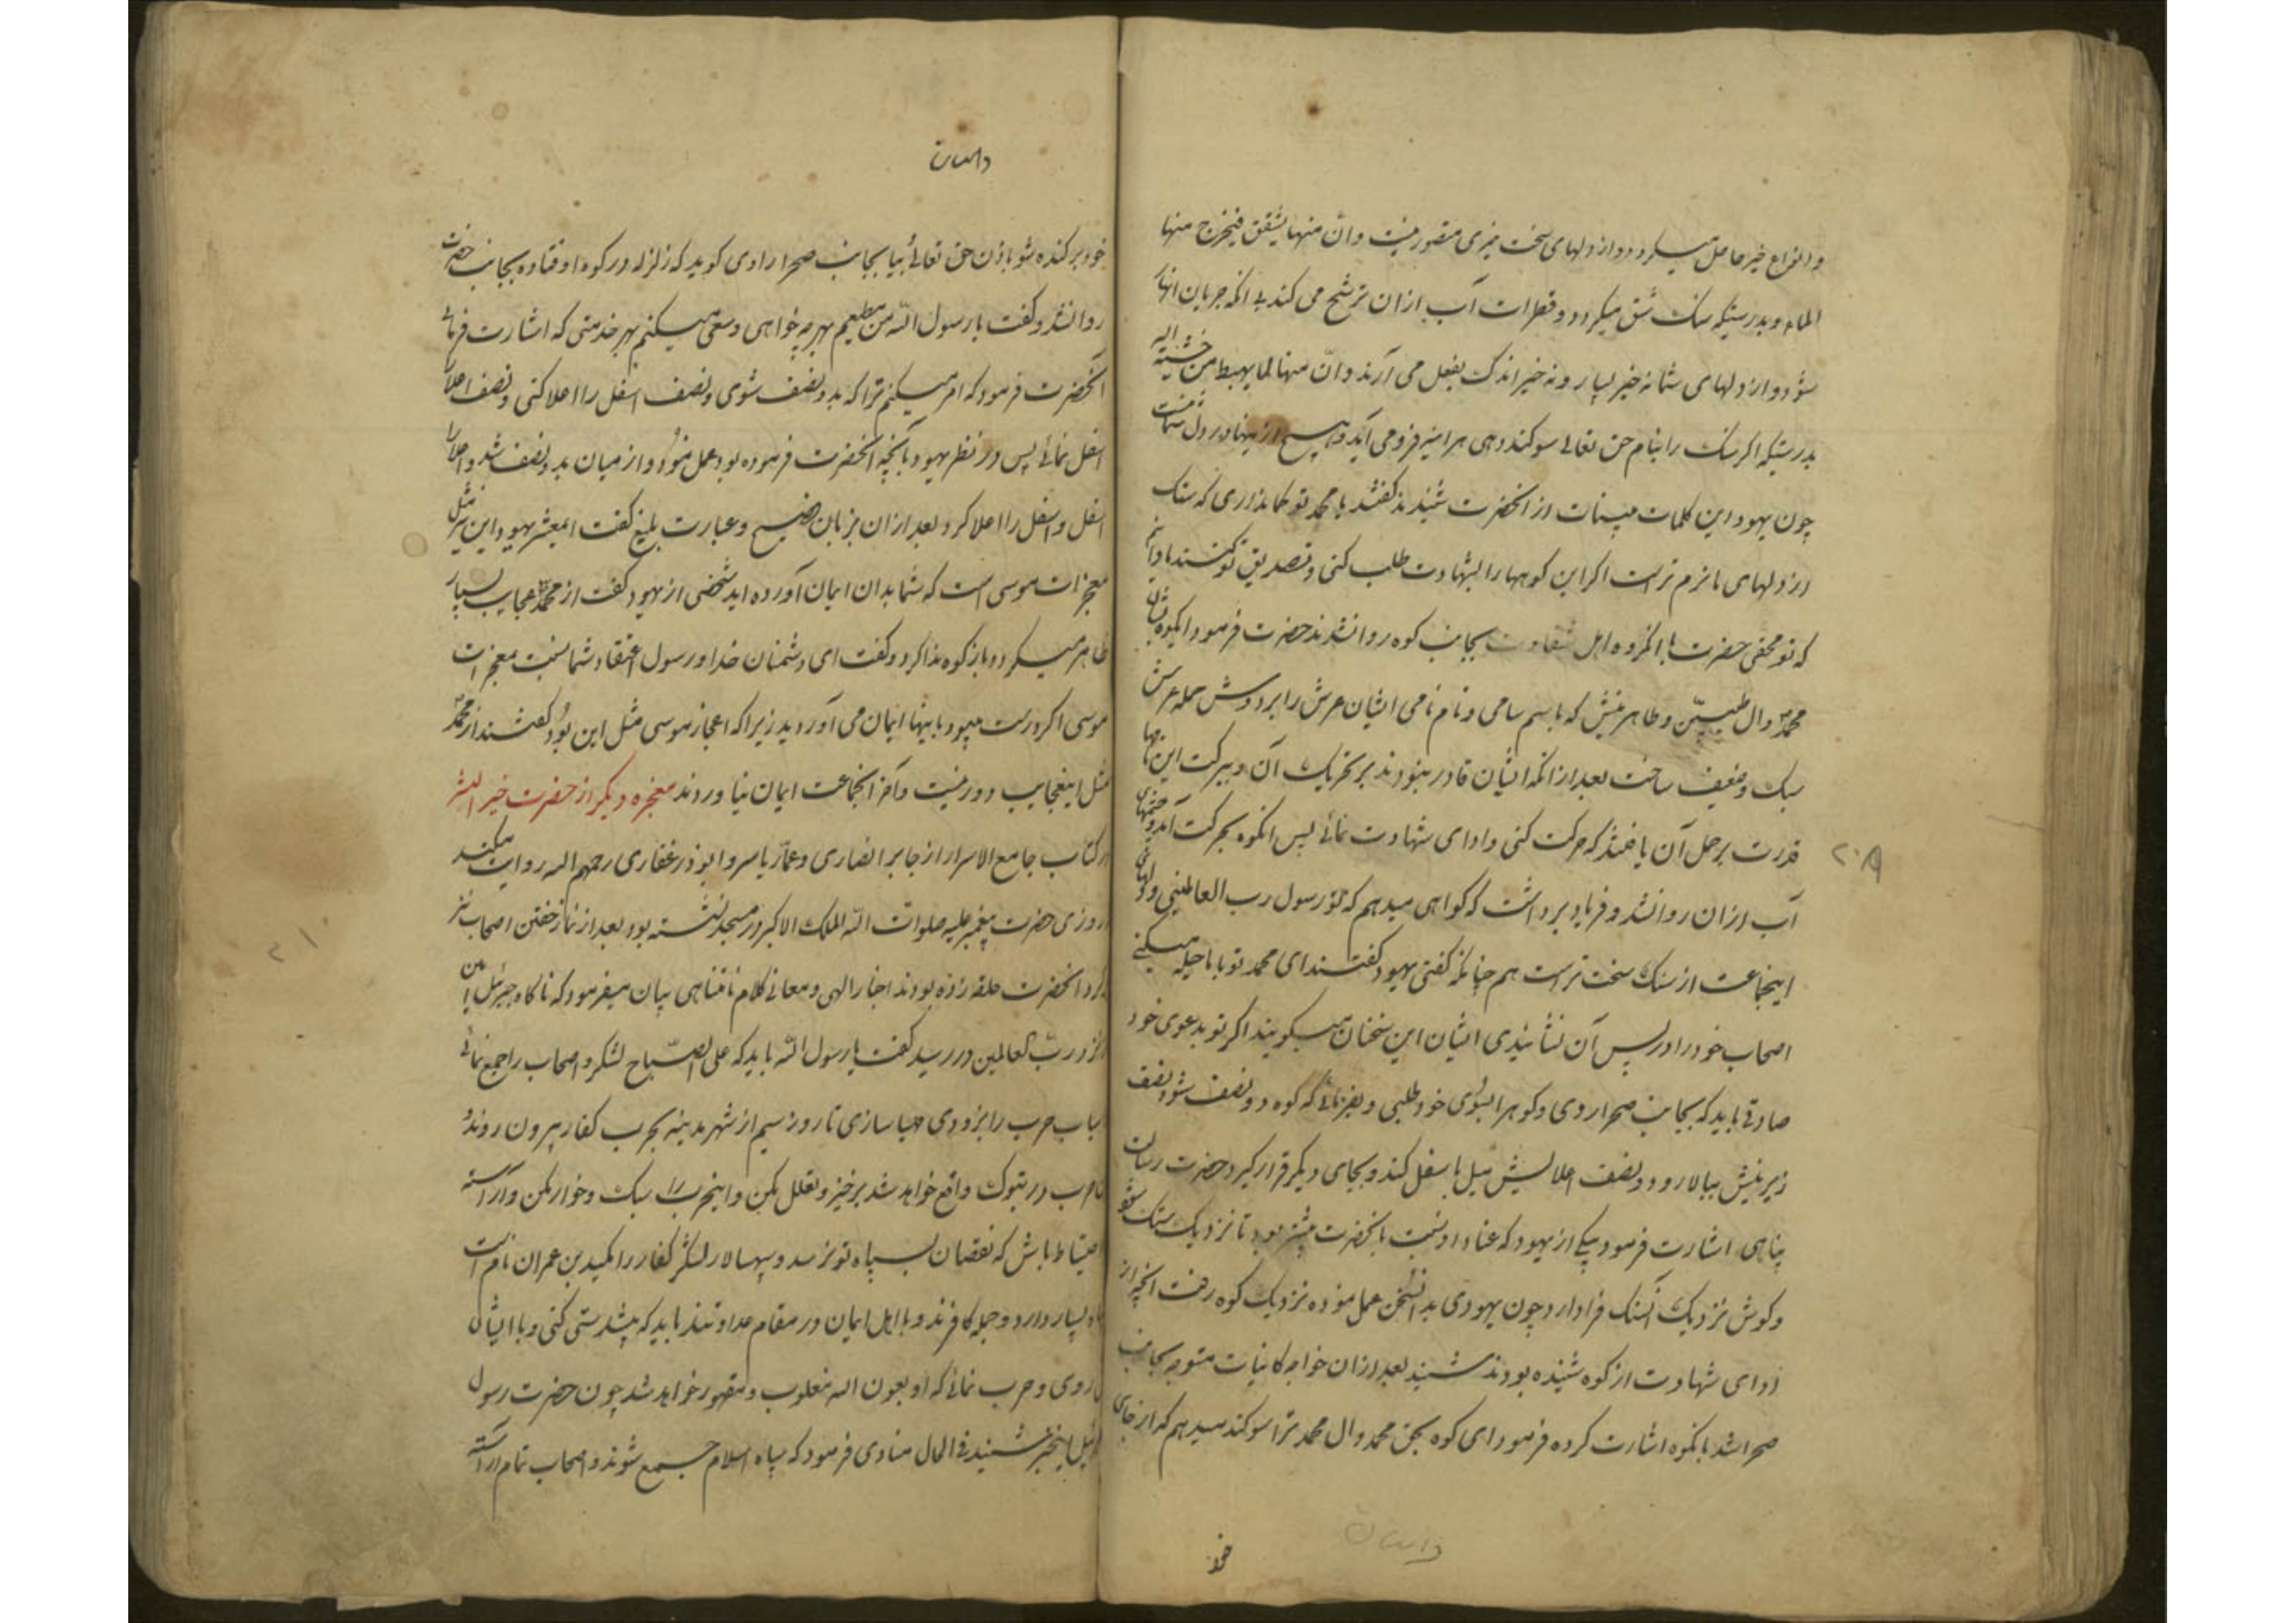 و انواع خیر حاصل میکردد و از دلهای سخت خیری متصور نیست و ان منها لما یشقق فیخرج منها
الماء و بدرستیکه سنک شق میکردد و قطرات آب از ان ترشح می کند بی انکه جریان انهار
شود و از دلهای شما نه خیر بسیار و نه خیر اندک بفعل می آرند و ان منها لما یهبط من خشیة الله
بدرستیکه اکر سنک را بنام حق تعالی سوکند دهی هر اینه فرو می آید و هیچ از اینها در دل شما نیست
چون یهود این کلمات بینات از انحضرت شنیدند کفتند یا محمد تو کمان داری که سنک
از دلهای ما نرم تر است اکر این کوهها را بشهادت طلب کنی و تصدیق تو کنند ما دانیم
که تو محقی حضرت با انکروه اهل شقاوت بجانب کوه روانشدند حضرت فرمود ایکوه بحق
محمد و ال طیبین و طاهرینش که باسم سامی و نام نامی ایشان عرش را بر دوش حمله عرش
سبک و ضعیف ساخت بعد از انکه ایشان قادر نبودند بر تحریک آن و ببرکت این نامها
قدرت بر حمل آن یافتند که حرکت کنی و ادای شهادت نمائی پس انکوه بحرکت آمد و چشمهای
آب از ان روانشد و فریاد برداشت که کواهی میدهم که تو رسول رب العالمینی و دلهای
اینجماعت از سنک سخت تر است هم چنانکه کفتی یهود کفتند ای محمد تو با ما حیله میکنی
اصحاب خود را در پس آن نشانیدی ایشان این سخنان میکویند اکر تو بدعوی خود
صادقی باید که بجانب صحرا روی و کوه را بسوی خود طلبی و بفرمائی که کوه دو نصف شود نصف
زیرینش ببالا رود و نصف اعلایش میل باسفل کند و بجای دیکر قرار کیرد حضرت رسالت
پناهی اشارت فرمود بیکی از یهود که عناد او نسبت بانحضرت بیشتر بود تا نزدیک سنک شود
و کوش نزدیک آنسنک فرا دارد چون یهودی بدانسخن عمل نموده نزدیک کوه رفت انچه از
ادای شهادت از کوه شنیده بودند شنید بعد از ان خواجه کاینات متوجه بجانب
صحرا شد بانکوه اشارت کرده فرمود ای کوه بحق محمد و ال محمد ترا سوکند میدهم که از جای
خود
داستان
۲۰۹
داستان
خود برکنده شو باذن حق تعالی بیا بجانب صحرا راوی کوید که زلزله در کوه اوفتاده بجانب حضرت
روانشد و کفت یا رسول الله من مطیعم بهرچه خواهی و سعی میکنم بهر خدمتی که اشارت فرمائی
آنحضرت فرمود که امر میکنم ترا که بدو نصف شوی و نصف اسفل را اعلا کنی و نصف اعلا را
اسفل نمائی پس در نظر یهود بآنچه انحضرت فرموده بود عمل نمود و از میان بدو نصف شد و اعلا را
اسفل و اسفل را اعلا کرد بعد از ان بزبان فصیح و عبارت بلیغ کفت ایمعشر یهود این نیز مثل
معجزات موسی است که شما بدان ایمان آورده اید شخصی از یهود کفت از محمد عجایب بسیار
ظاهر میکردد باز کوه ندا کرد و کفت ای دشمنان خدا و رسول اعتقاد شما نسبت بمعجزات
موسی اکر درست میبود باینها ایمان می آوردید زیرا که اعجاز موسی مثل این بود کفتند از محمد
مثل اینعجایب دور نیست و آخر انجماعت ایمان نیاوردند معجزه دیکر از حضرت خیر البشر
در کتاب جامع الاسرار از جابر انصاری و عمار یاسر و ابوذر غفاری رحمهم الله روایت میکند
روزی حضرت پیغمبر علیه صلوات الله الملک الاکبر در مسجد نشسته بود بعد از نماز خفتن اصحاب نیز
کرد انحضرت حلقه زده بودند اخبار الهی و معانی کلام نامتناهی بیان میفرمود که ناکاه جبرئیل امین
از نزد رب العالمین در رسید کفت یا رسول الله باید که علی الصباح لشکر و اصحاب را جمع نمائی
اسباب حرب را بزودی مهیا سازی تا روز سیم از شهر مدینه بحرب کفار بیرون روند
حرب در تبوک واقع خواهد شد برخیز و تعلل مکن و اینحرب را سبک و خوار مکن و آراسته
احتیاط باش که نقصان بسپاه تو نرسد و سپهسالار لشکر کفار را مکید بن عمران نام است
سپاه بسیار دارد و جمله کافرند و با اهل ایمان در مقام عداوتند باید که پیشدستی کنی و با ایشان
روی و حرب نمائی که او بعون الله مغلوب و مقهور خواهد شد چون حضرت رسول
اینخبر شنید فی الحال منادی فرمود که سپاه اسلام جمع شوند و اصحاب تمام آراسته
۲۱۰